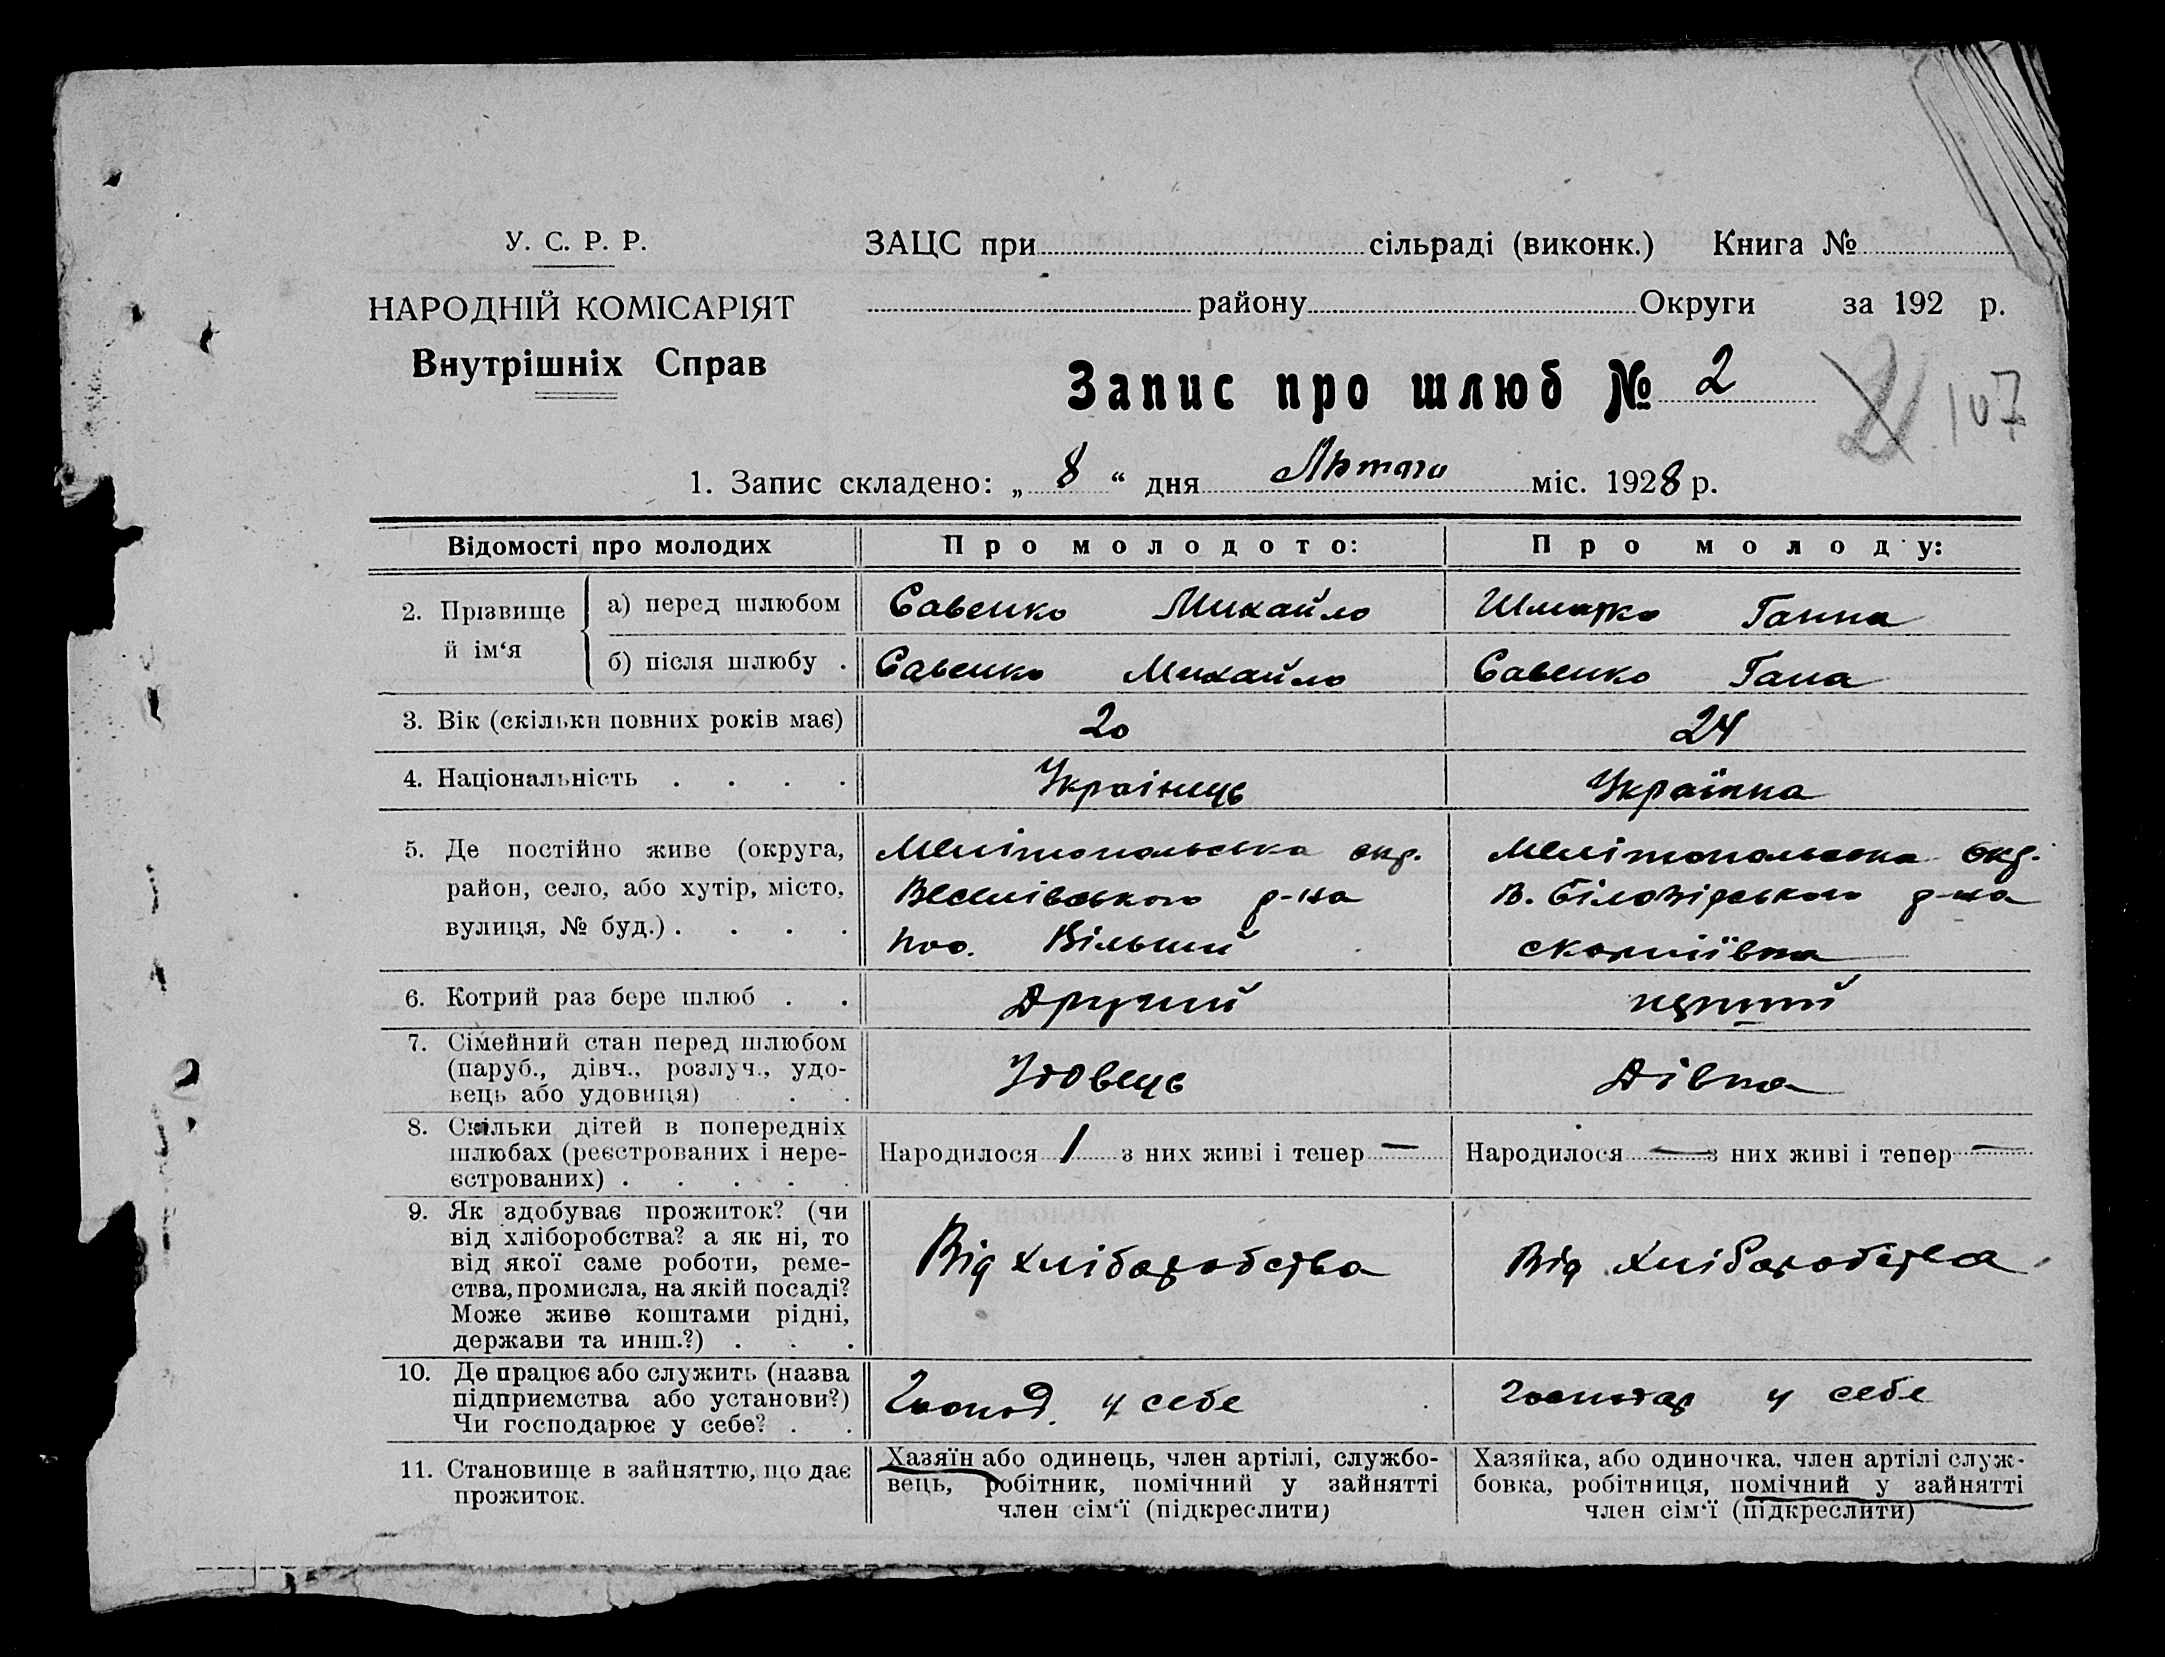 У. С. Р. Р.
НАРОДНІЙ КОМІСАРІЯТ
Внутрішніх Справ
ЗАЦС при сільраді (виконк.) Книга №
району Округи за 192 р.
Запис про шлюб № 2
2 107
1. Запис складено: „ 8 “ дня Лютого міс. 1928 р.
Відомості про молодих Про молодого: Про молоду:
2. Прізвище й ім‘я
а) перед шлюбом Савенко Михайло Шматко Ганна
б) після шлюбу . Савенко Михайло Савенко Гана
3. Вік (скільки повних років має) 20 24
4. Національність . . . . Украінець Українка
5. Де постійно живе (округа, Мелітопольська окр. Мелітопольська окр.
район, село, або хутір, місто, Веселівського р-на В. Білозірського р-на
вулиця, № буд.) . . . . пос. Вільний
6. Котрий раз бере шлюб . . Другий
7. Сімейний стан перед шлюбом
(паруб., дівч., розлуч., удо-
вець або удовиця) . . Удовець Дівка
8. Скільки дітей в попередніх
шлюбах (реєстрованих і нере-
єстрованих) . . . . .
Народилося 1 з них живі і тепер — Народилося — з них живі і тепер —
9. Як здобуває прожиток? (чи
від хліборобства? а як ні, то
від якої саме роботи, реме-
ства, промисла, на якій посаді?
Може живе коштами рідні,
держави та инш.?) . . .
Від хліборобства Від хліборобства
10. Де працює або служить (назва
підприємства або установи?)
Чи господарює у себе? . .
Господ. у себе Господар у себе
11. Становище в зайняттю, що дає
прожиток.
Хазяїн або одинець, член артілі, службо-
вець, робітник, помічний у зайнятті
член сім‘ї (підкреслити)
Хазяйка, або одиночка. член артілі служ-
бовка, робітниця, помічний у зайнятті
член сім‘ї (підкреслити)